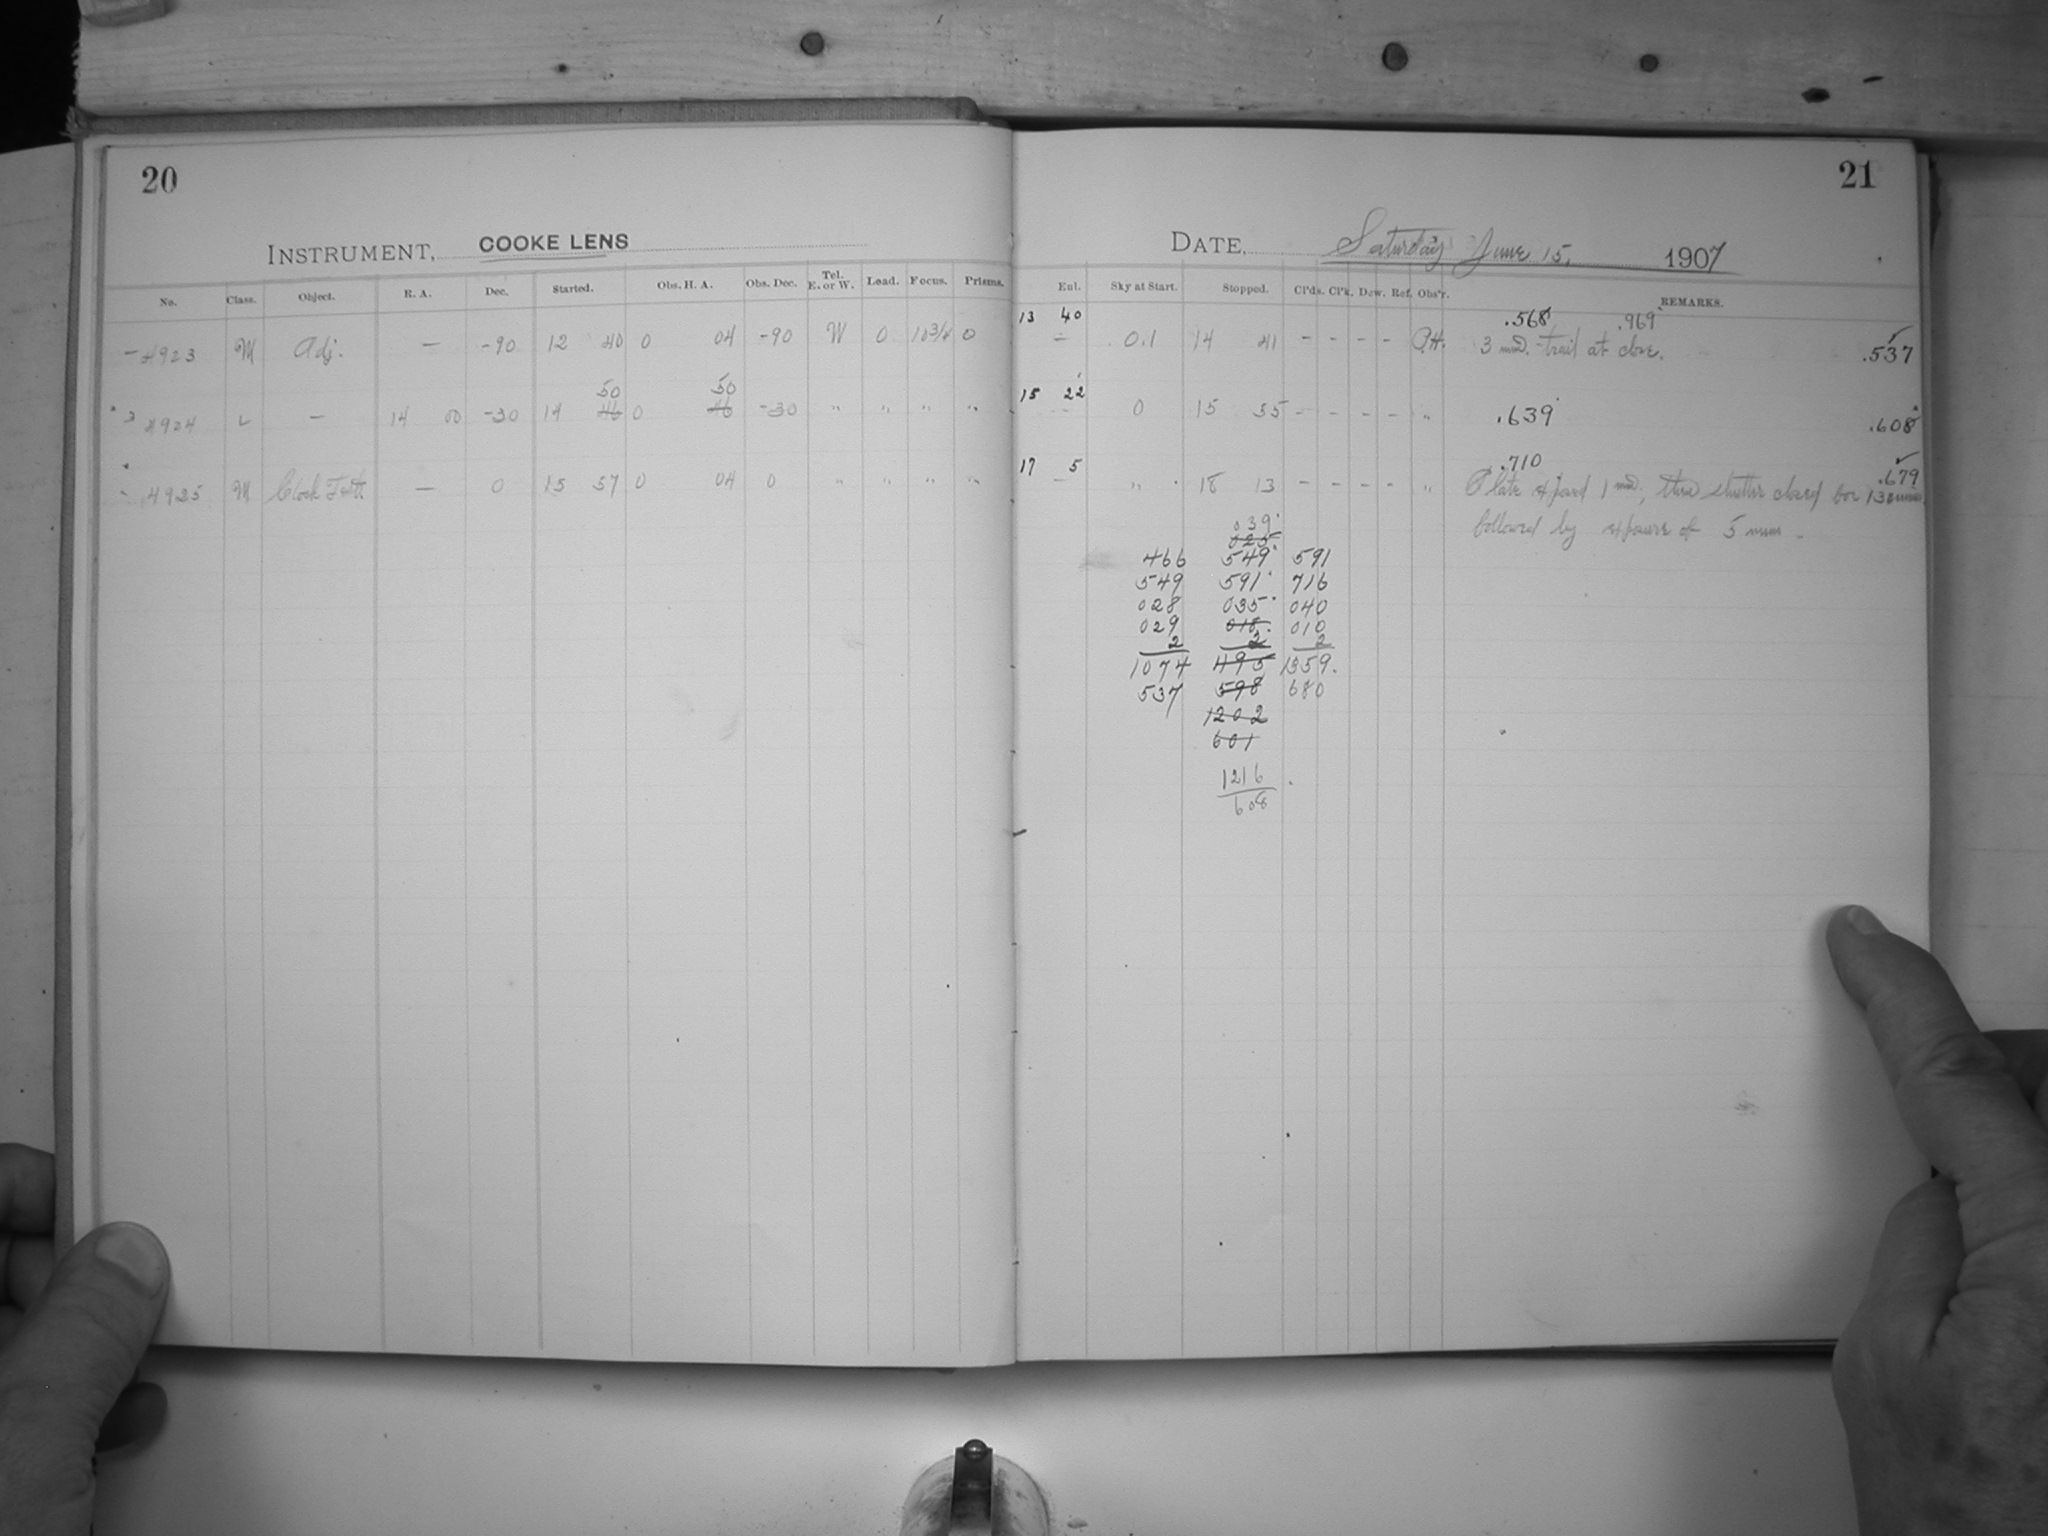 20
INSTRUMENT, COOKE LENS
No. Class. Object. R. A. Dec. Started. Obs. H. A. Obs. Dec. Tel. E. or W. Load. Focus. Prisms.
4923 M Adj. — -90 12 40 0 04 -90 W 0 10 3/4 0
50 50
4924 L — 14 00 -30 14 46 0 46 -30 " " " "
4925 M Clock Test. — 0 15 57 0 04 0 " " " "
21
DATE, Saturday June 15, 1907
Eul. Sky at Start. Stopped. Cl'ds. Cl'k. Dew. Ref. Obs'r. REMARKS.
13 40 .568 .969
— 0.1 14 41 - - - - P.H. 3 min. trail at close. .537
15 22
0 15 55 - - - - " .639 .608
17 5 .710 .679
— " 18 13 - - - - " Plate exposed 1 min, then shutter closed for 130 min
followed by exposure of 5 min.
039
025
466 549 591
549 591 716
028 035 040
029 018 010
2 2 2
1074 1195 1359.
537 598 680
1202
601
1216
608